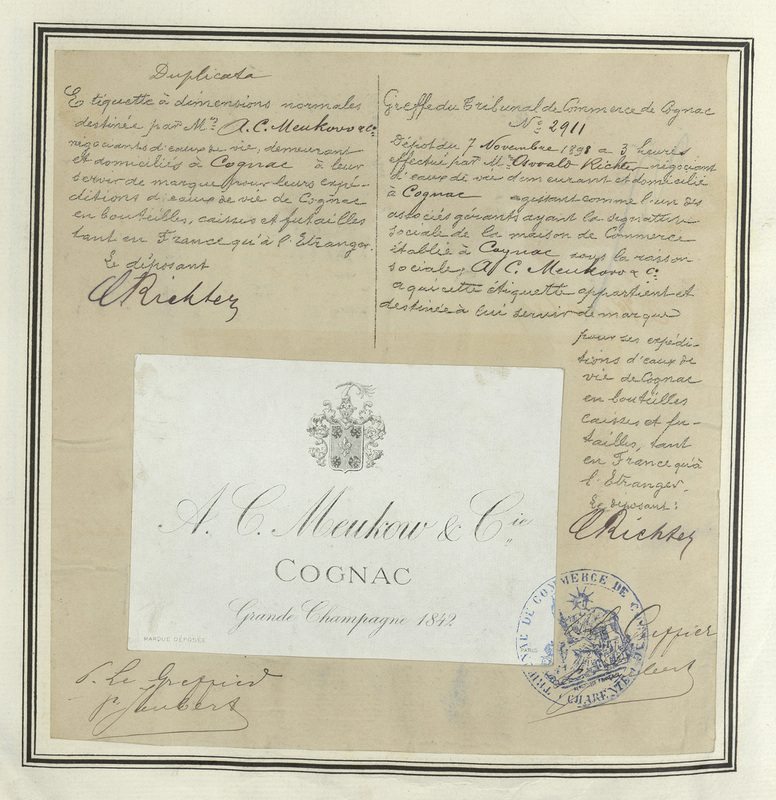 Duplicata
Etiquette à dimensions normales
destinée par Mrs A. C. Meukow & Cie
négociants d'eaux de vie, demeurant
et domiciliés à Cognac à leur
servir de marque pour leurs expé-
ditions d'eaux de vie de Cognac
en bouteilles, caisses et futailles
tant en France qu'à l'Etranger.
Le déposant
Richter
Greffe du Tribunal de Commerce de Cognac
No 2911
Dépôt du 7 Novembre 1898 a 3 heures
effectué par Mr Oswald Richter négociant
d'eaux de vie demeurant et domicilié
à Cognac agissant comme l'un des
associés gérants ayant la signature
sociale de la maison de Commerce
établie à Cognac sous la raison
sociale, A. C. Meukow & Cie
a qui cette étiquette appartient et
destinée à lui servir de marque
pour ses expédi-
tions d'eaux de
vie de Cognac
en bouteilles
caisses et fu-
tailles, tant
en France qu'à
l'Etranger.
Le déposant:
Richter
A. C. Meukow & Cie
COGNAC
Grande Champagne 1842
MARQUE DÉPOSÉE
TRIBUNAL DE COMMERCE DE COGNAC
CHARENTE
PARIS
Greffier
P. Le Greffier